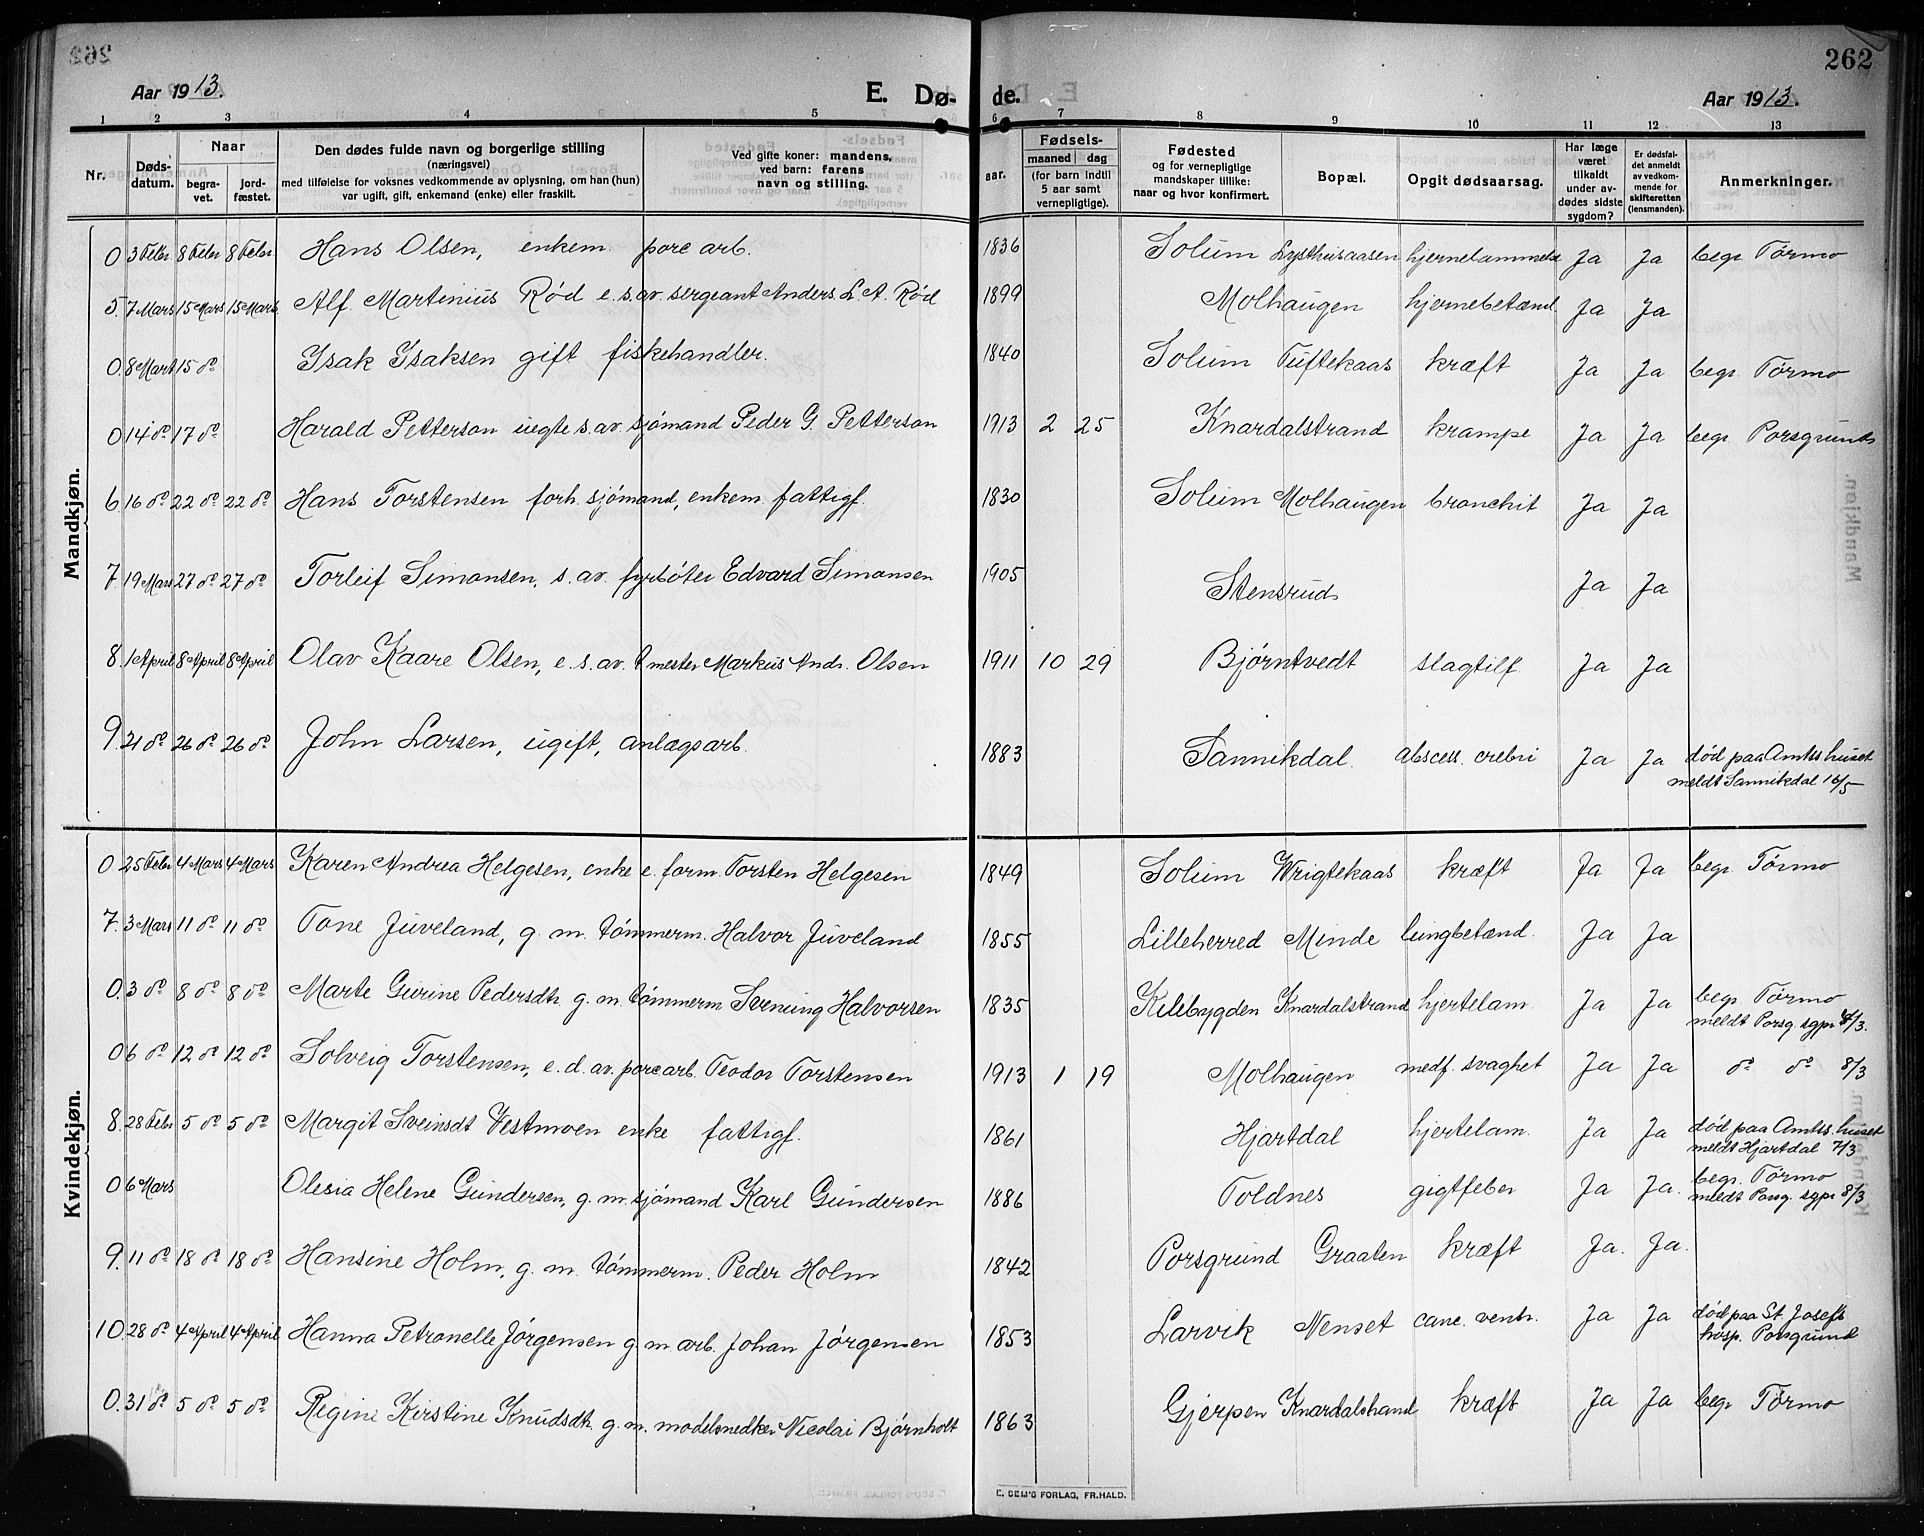 262
Aar 1913. E. Dø- de. Aar 1913.
1 2 3 4 5 6 7 8 9 10 11 12 13
Nr. Døds-datum. Naar begra-vet. jord-fæstet. Den dødes fulde navn og borgerlige stilling (næringsvei) med tilføielse for voksnes vedkommende av oplysning, om han (hun) var ugift, gift, enkemand (enke) eller fraskilt. Ved gifte koner: mandens, ved barn: farens navn og stilling. aar. Fødsels- maaned dag (for barn indtil 5 aar samt vernepligtige). Fødested og for vernepligtige mandskaper tillike: naar og hvor konfirmert. Bopæl. Opgit dødsaarsag. Har læge været tilkaldt under av-dødes sidste sygdom? Er dødsfal-det anmeldt av vedkom-mende for skifteretten (lensmanden). Anmerkninger.
Mandkjøn.
0 3 Febr. 8 Febr 8 Febr. Hans Olsen, enkem. porc arb. 1836 Solum Lysthusaasen hjernelammels Ja Ja begr. Tørmo
5. 7 Mars 15 Mars 15 Mars Alf Martinius Rød e. s. av sergeant Anders L. A. Rød 1899 Molhaugen hjernebetænd. Ja Ja
0. 8 Mars 15 do Isak Isaksen gift fiskehandler. 1840 Solum Tuftekaas kræft Ja Ja begr. Tørmo
0 14 do 17 do Harald Petterson uegte s. av. sjømand Peder G. Petterson 1913 2 25 Knardalstrand krampe Ja Ja begr Porsgrund
6. 16 do 22 do 22 do Hans Torstensen forh. sjømand, enkem. fattigf. 1830 Solum Molhaugen bronchit Ja Ja
7. 19 Mars 27 do 27 do Torleif Simonsen, s. av. fyrbøter Edvard Simonsen 1905 Stensrud Ja Ja
8. 1 April 8 April 8 April Olav Kaare Olsen, e. s. av. mester Markus Andr. Olsen 1911 10 29 Bjørntvedt slagtilf. Ja Ja
9. 21 do 26 do 26 do John Larsen, ugift, anlægsarb. 1883 Sannikdal. abscess. crebri Ja Ja død paa Amts huset
meldt Sannikdal 16/5
Kvindekjøn.
0 25 Febr 4 Mars 4 Mars Karen Andrea Helgesen, enke e. form. Torsten Helgesen 1849 Solum Wrigtekaas kræft Ja Ja begr Tørmo
7. 3 Mars 11 do 11 do Tone Juveland, g. m. tømmerm. Halvor Juveland 1855 Lilleherred Minde lungbetænd. Ja Ja
0. 3 do 8 do 8 do Marte Gurine Pedersdtr g. m. tømmerm Svenung Halvorsen 1835 Kilebygden Knardalstrand hjertelam. Ja Ja begr Tørmo
meldt Porsg. sgpr 8/3.
0 6 do 12 do 12 do Solveig Torstensen, e. d. av. porc arb. Teodor Torstensen 1913 1 19 Molhaugen medf. svaghet Ja Ja do do 8/3
8. 28 Febr 5 do 5 do Margit Sveinsdt Vestmoen enke fattigf. 1861 Hjartdal hjertelam. Ja Ja død paa Amts. huset
meldt Hjartdal 7/3
0 6 Mars Olesia Helene Gundersen, g. m. sjømand Karl Gundersen 1886 Toldnes gigtfeber Ja Ja. begr. Tørmo
meldt Porsg. sgpr 8/3
9. 11 do 18 do 18 do Hansine Holm, g. m. tømmerm. Peder Holm 1842 Porsgrund Graaten kræft Ja. Ja.
10. 28 do 4 April 4 April Hanna Petronelle Jørgensen g. m. arb. Johan Jørgensen 1853 Larvik Nenset canc. ventr. Ja Ja død paa St. Josefs
hosp. Porsgrund
0. 31 do 5 do 5 do Regine Kirstine Knudsdtr. g. m. modelsnedker Nicolai Bjørnholt 1863 Gjerpen Knardalstrand kræft Ja Ja begr Tørmo
E. SEM'S FORLAG, FR.HALD.